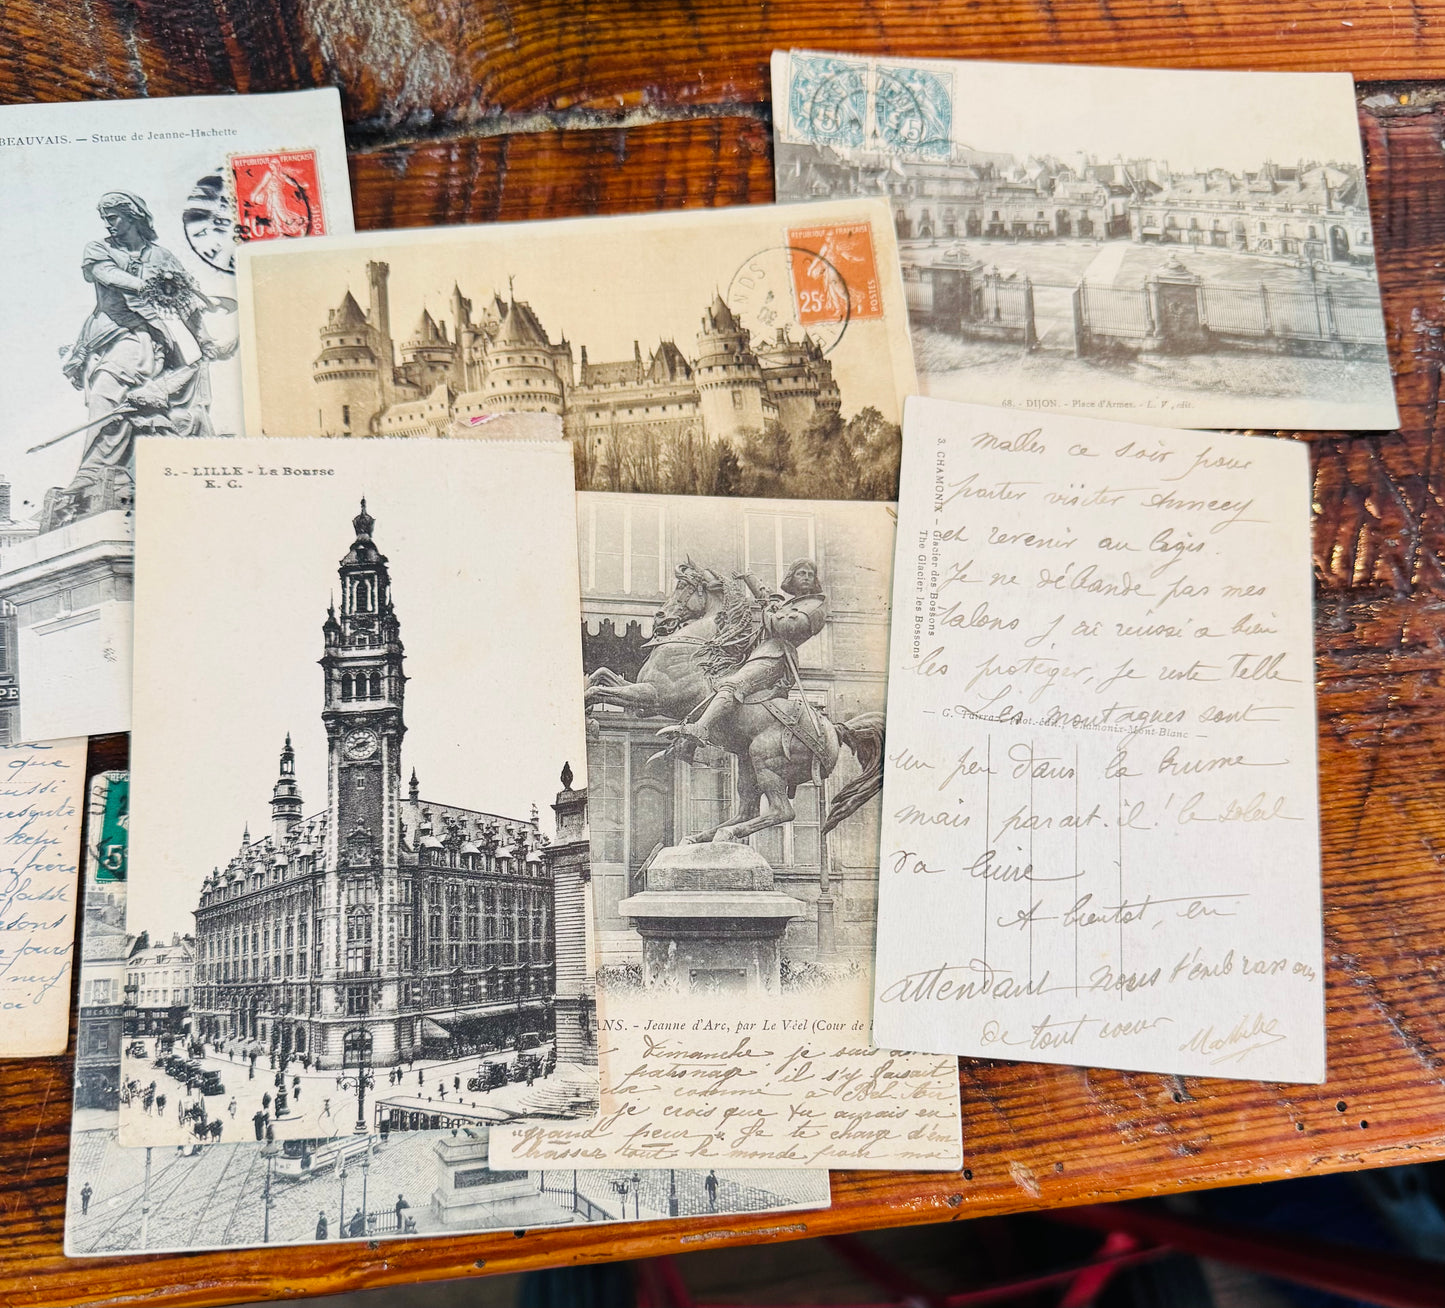 BEAUVAIS. — Statue de Jeanne-Hachette
REPUBLIQUE FRANÇAISE
10
POSTES
REPUBLIQUE FRANÇAISE
25c
POSTES
5
68. - DIJON. - Place d'Armes. - L. V., édit.
3. - LILLE - La Bourse
E. C.
ANS. - Jeanne d'Arc, par Le Véel (Cour de l
Dimanche je suis
il s'y faisait
comme à Bel Air
je crois que tu aurais eu
grand peur. Je te charge d'em
brasser tout le monde pour moi
3. CHAMONIX - Glacier des Bossons
The Glacier les Bossons
malles ce soir pour
partir visiter Annecy
et revenir au logis.
Je ne débande pas mes
talons j'ai réussi a bien
les protéger, je reste telle
Les montagnes sont
un peu dans la brume
mais parait-il! le soleil
va luire
A bientot, en
attendant nous t'embrassons
de tout coeur
— G. Tairraz, phot.-édit., Chamonix-Mont-Blanc —
que
képi
sont
jours
neuf
5